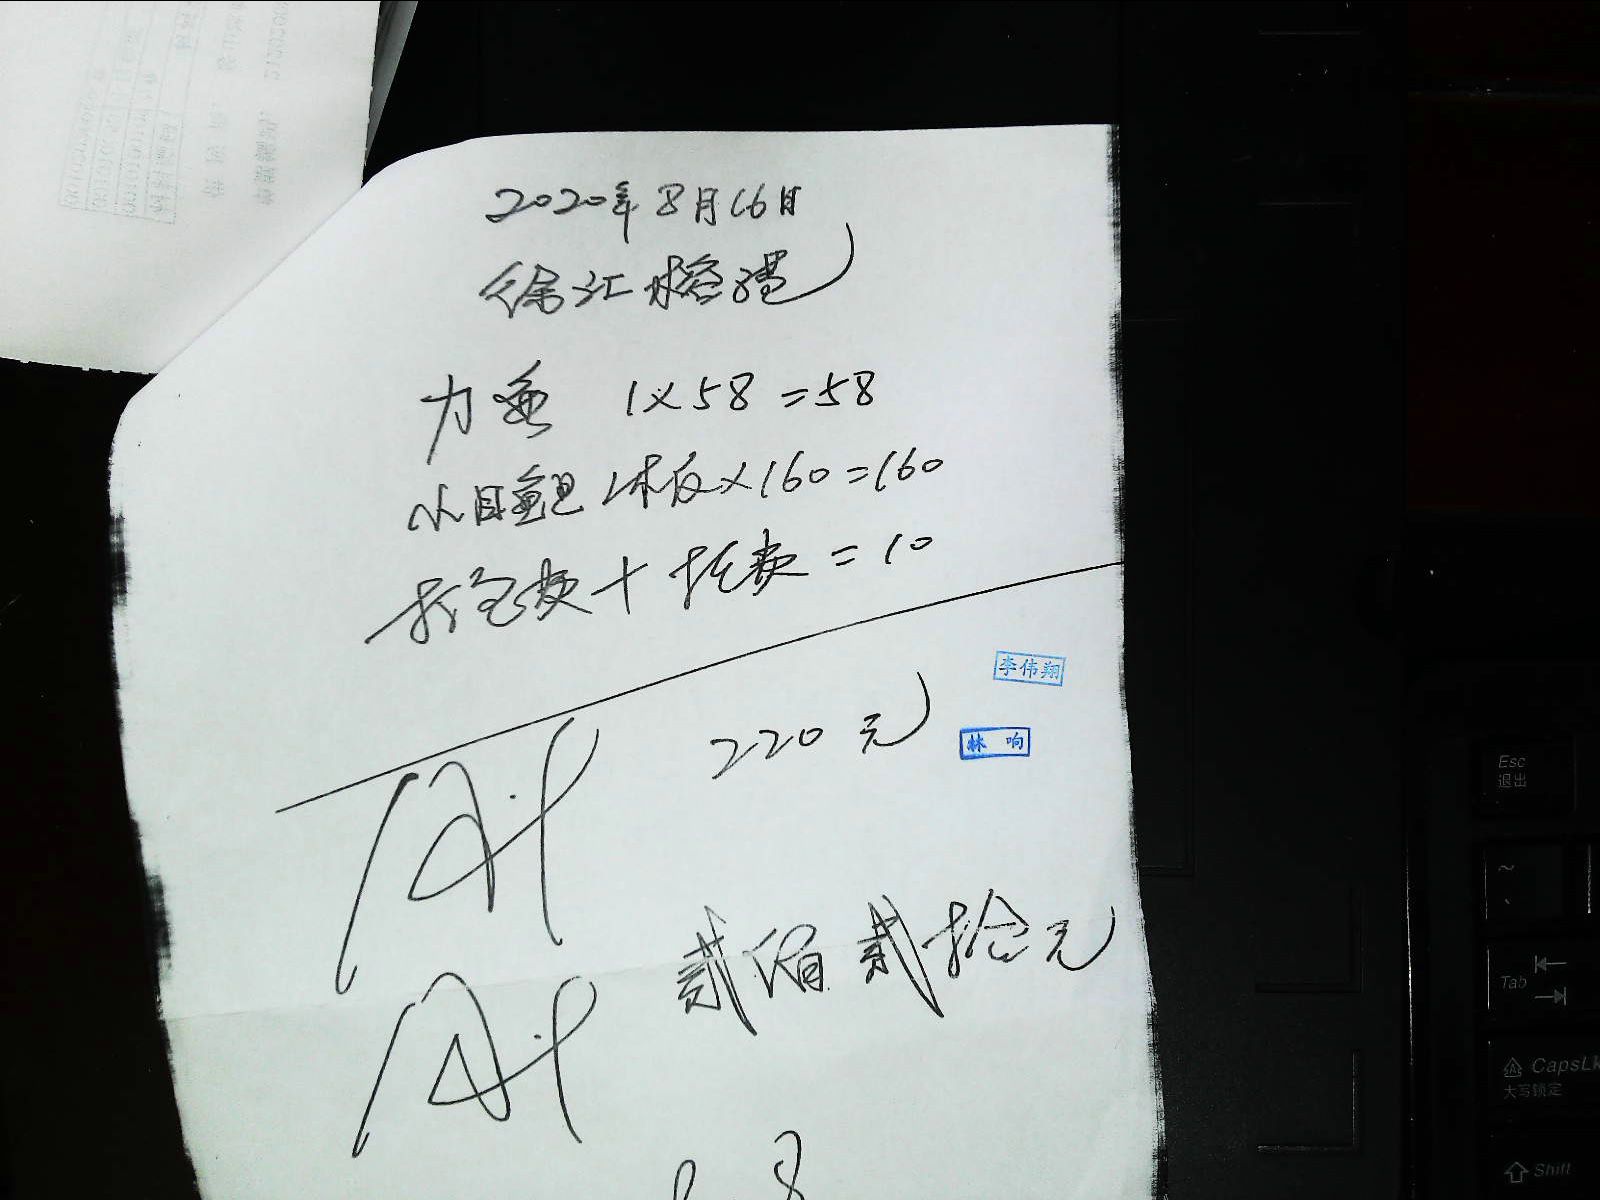 2020年8月16日
徐汇榕港
力鱼 1×58=58
小目鱼 1木板×160=160
打包费+托费=10
李伟翔
220元
林响
贰佰贰拾元
8
Esc
退出
~
Tab
CapsLk
大写锁定
Shift